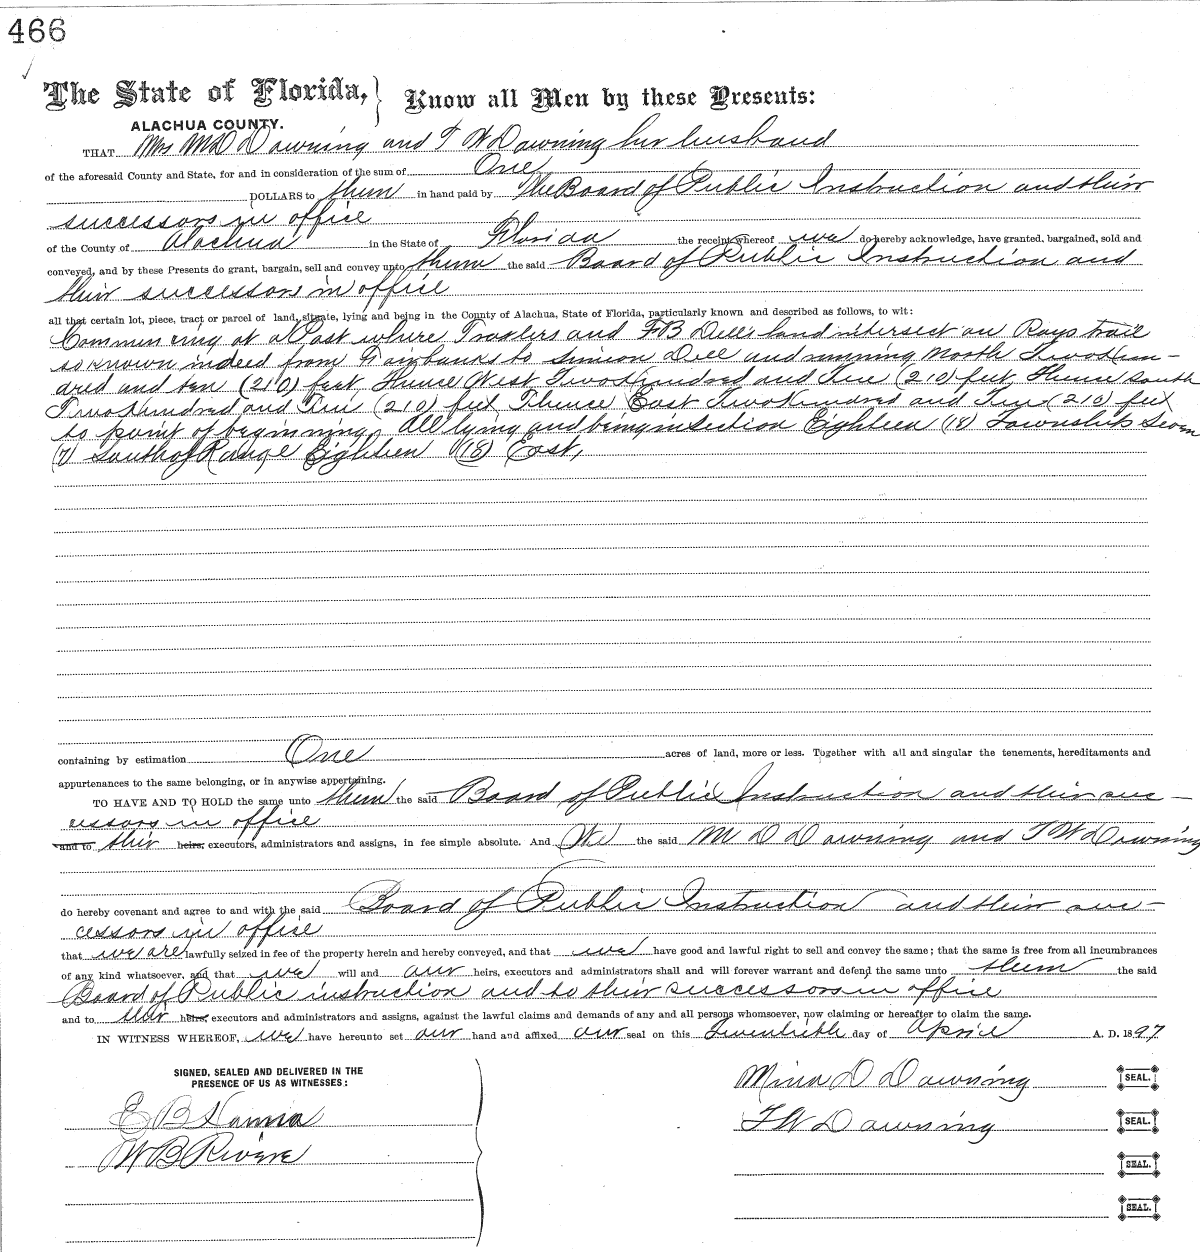 466
The State of Florida, } Know all Men by these Presents:
ALACHUA COUNTY.
THAT Mrs M D Downing and T W Downing her husband
of the aforesaid County and State, for and in consideration of the sum of One
DOLLARS to them in hand paid by The Board of Public Instruction and their
successors in office
of the County of Alachua in the State of Florida the receipt whereof we do hereby acknowledge, have granted, bargained, sold and
conveyed, and by these Presents do grant, bargain, sell and convey unto them the said Board of Public Instruction and
their successors in office
all that certain lot, piece, tract or parcel of land, situate, lying and being in the County of Alachua, State of Florida, particularly known and described as follows, to wit:
Commencing at a Post where and F B Dell's land intersect on Rays trail
so known indeed from Fairbanks to Simeon Dell and running North Two Hun-
dred and ten (210) feet, Thence West Two Hundred and Ten (210) feet, Thence South
Two Hundred and Ten (210) feet, Thence East Two Hundred and Ten (210) feet
to point of beginning, All lying and being in Section Eighteen (18) Township Seven
(7) South of Range Eighteen (18) East,
containing by estimation One acres of land, more or less. Together with all and singular the tenements, hereditaments and
appurtenances to the same belonging, or in anywise appertaining.
TO HAVE AND TO HOLD the same unto them the said Board of Public Instruction and their suc-
cessors in office
and to their heirs, executors, administrators and assigns, in fee simple absolute. And We the said M D Downing and T W Downing
do hereby covenant and agree to and with the said Board of Public Instruction and their suc-
cessors in office
that we are lawfully seized in fee of the property herein and hereby conveyed, and that we have good and lawful right to sell and convey the same; that the same is free from all incumbrances
of any kind whatsoever, and that we will and our heirs, executors and administrators shall and will forever warrant and defend the same unto them the said
Board of Public instruction and to their successors in office
and to their heirs, executors and administrators and assigns, against the lawful claims and demands of any and all persons whomsoever, now claiming or hereafter to claim the same.
IN WITNESS WHEREOF, we have hereunto set our hand and affixed our seal on this Twentieth day of April A. D. 1897
SIGNED, SEALED AND DELIVERED IN THE
PRESENCE OF US AS WITNESSES:
Mina D Downing SEAL.
E B Hanna
T W Downing SEAL.
W B Rivere
SEAL.
SEAL.